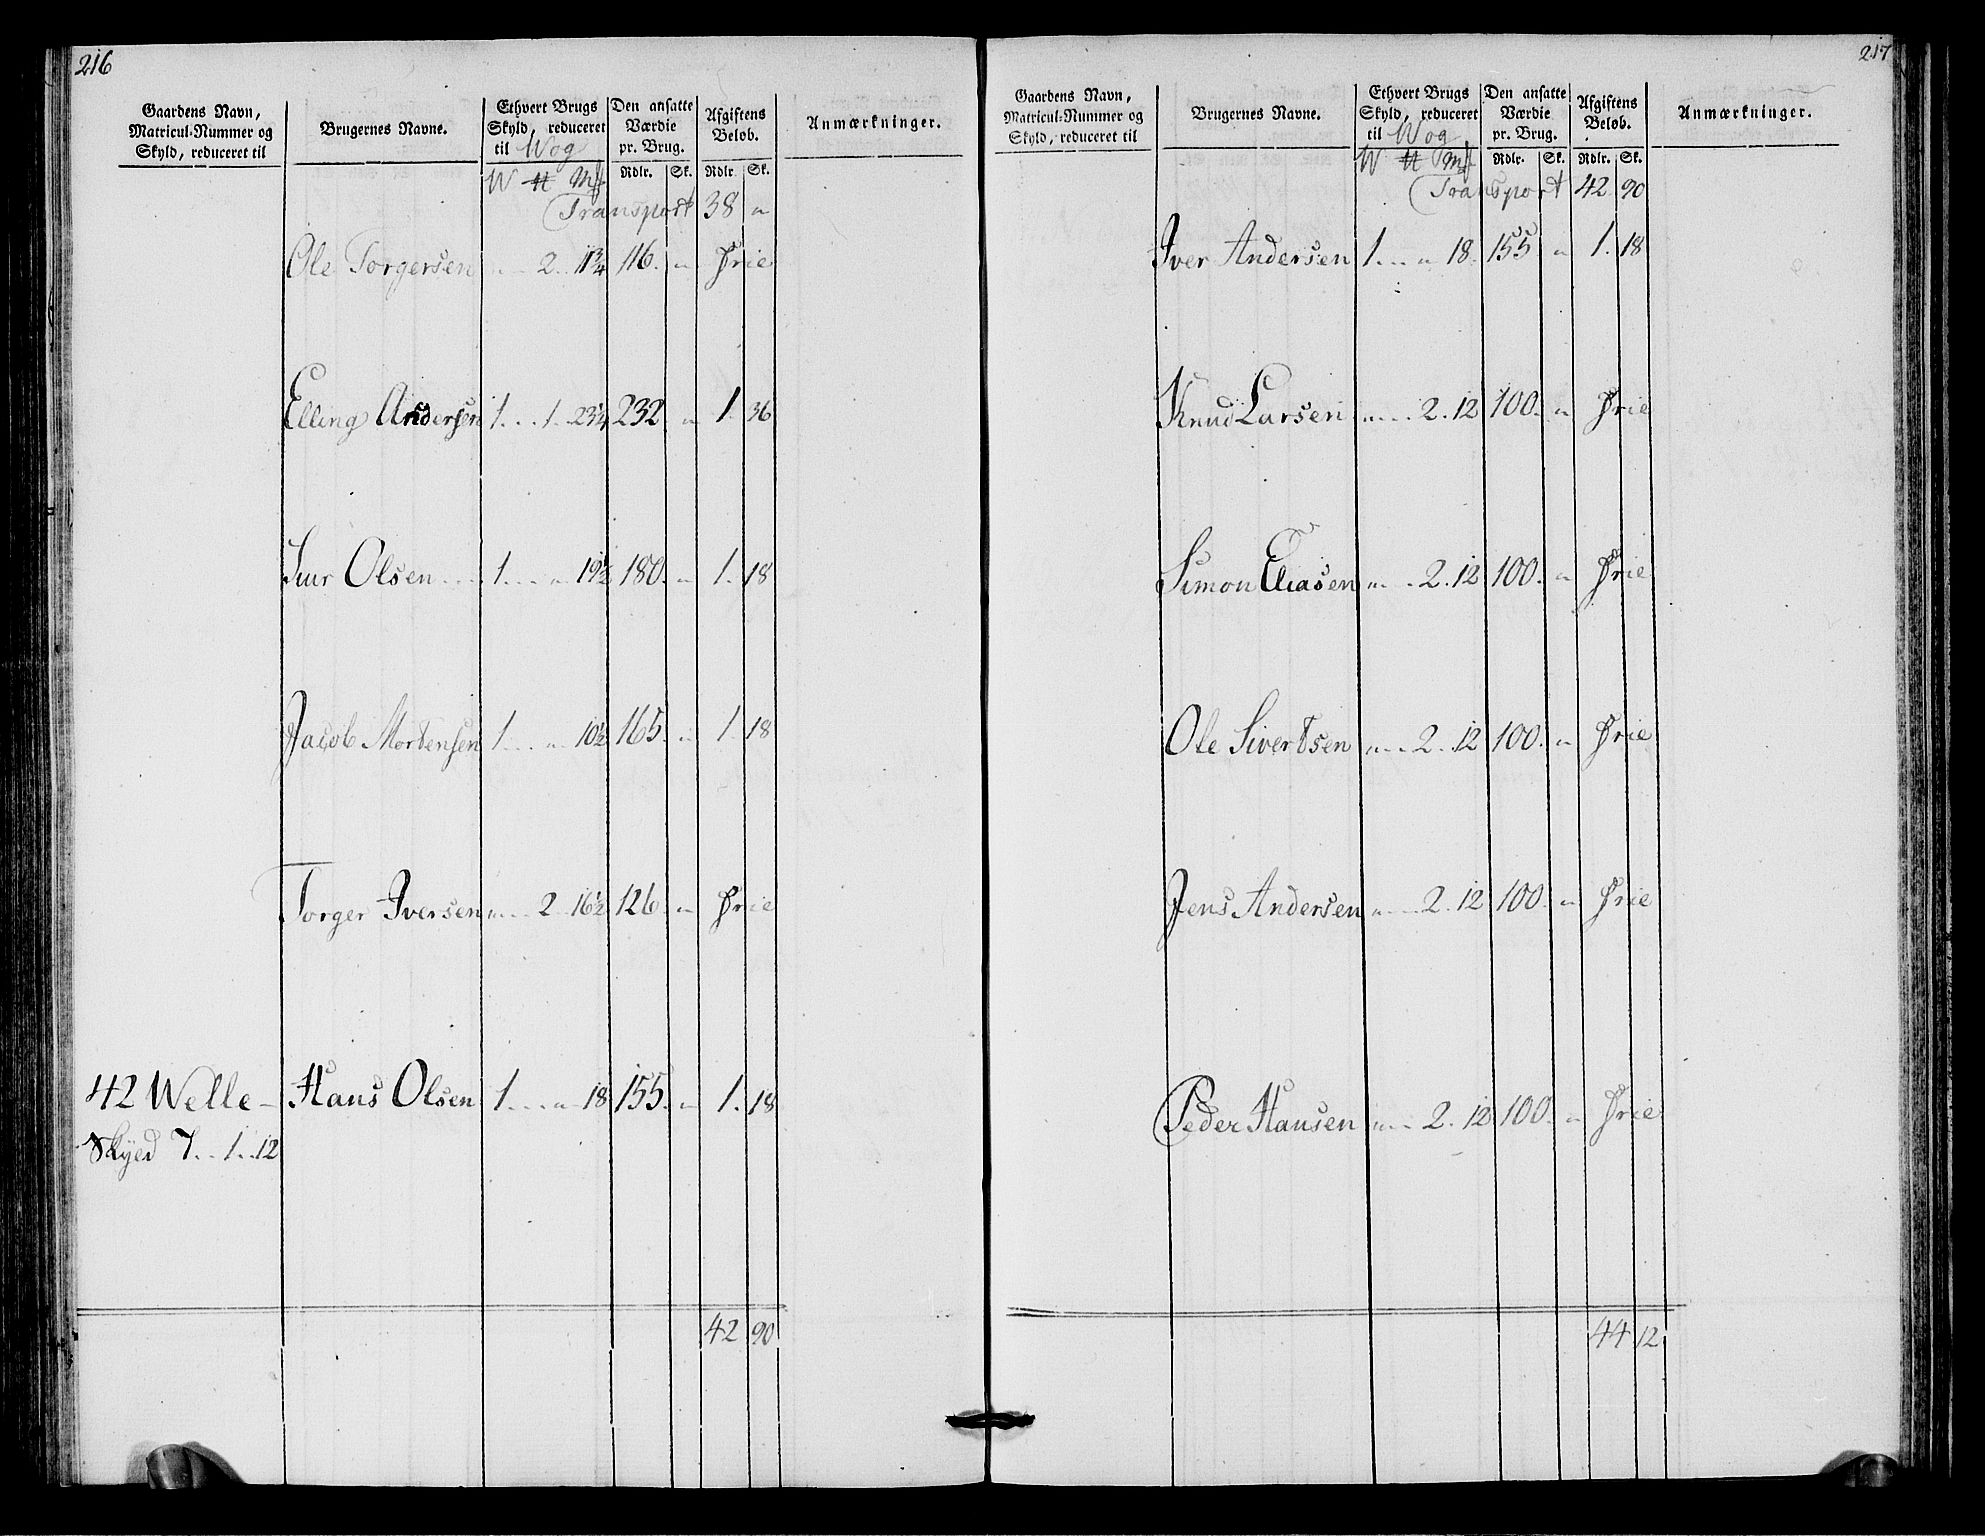 216
Gaardens Navn, Matricul-Nummer og Skyld, reduceret til
Brugernes Navne.
Ethvert Brugs Skyld, reduceret til Wog
W ℔ Mk
Den ansatte Værdie pr. Brug.
Rdlr. Sk.
Afgiftens Beløb.
Rdlr. Sk.
Anmærkninger.
Transport 38 "
Ole Torgersen " 2 . 11¾ 116. " Frie
Elling Andersen 1 . . . 1 . . 23¼ 232 " 1. 36
Siur Olsen . . . 1 . . . " 19½ 180. " 1. 18
Jacob Mortensen 1 . . . " 10½ 165. " 1. 18
Torger Iversen " . . . 2 16½ 126. " Frie
42 Welle – Hans Olsen 1 . . . " 18 155. " 1. 18
Skyld 7 . . 1 . . 12
42 90
217
Gaardens Navn, Matricul-Nummer og Skyld, reduceret til
Brugernes Navne.
Ethvert Brugs Skyld, reduceret til Wog
W ℔ Mk
Den ansatte Værdie pr. Brug.
Rdlr. Sk.
Afgiftens Beløb.
Rdlr. Sk.
Anmærkninger.
Transport 42 90
Iver Andersen 1 . . . " 18. 155 " 1. 18
Knud Larsen " . . . 2 . 12 100. " Frie
Simon Eliasen " . . 2 . 12 100. " Frie
Ole Sivertsen " . . . 2 . 12 100. " Frie
Jens Andersen " . . . 2 . 12 100. " Frie
Peder Hansen " . . . 2 . 12 100. " Frie
44 12